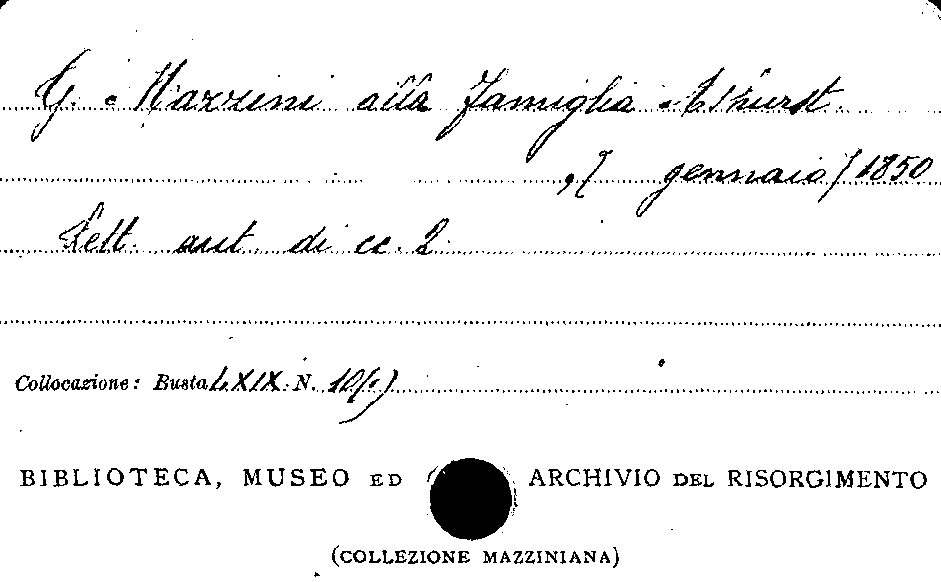 G. Mazzini alla famiglia Ashurst.
, [ gennaio ] 1850
Lett. aut. di cc. 2
Collocazione: Busta LXIX N. 10(1)
BIBLIOTECA, MUSEO ED ARCHIVIO DEL RISORGIMENTO
(COLLEZIONE MAZZINIANA)